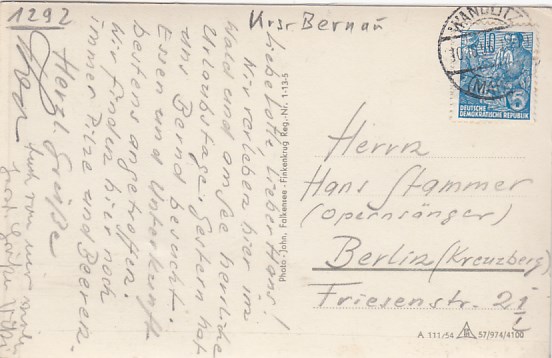 1292
Krsr Bernau
Liebe Lotte, Lieber Hans!
Wir verleben hier im
Wald und am See herrliche
Urlaubstage. Gestern hat
uns Bernd besucht.
Essen und Unterkunft
bestens angetroffen.
Wir finden hier noch
immer Pilze und Beeren.
Herzl. Grüße
Auch von mir
Photo-John, Falkensee-Finkenkrug Reg.-Nr. 1-13-5
WANDLITZ
(MARK)
10
DEUTSCHE
DEMOKRATISCHE REPUBLIK
Herrn
Hans Stammer
(Opernsänger)
Berlin (Kreuzberg)
Friesenstr. 21
I
A 111/54 57/974/4100